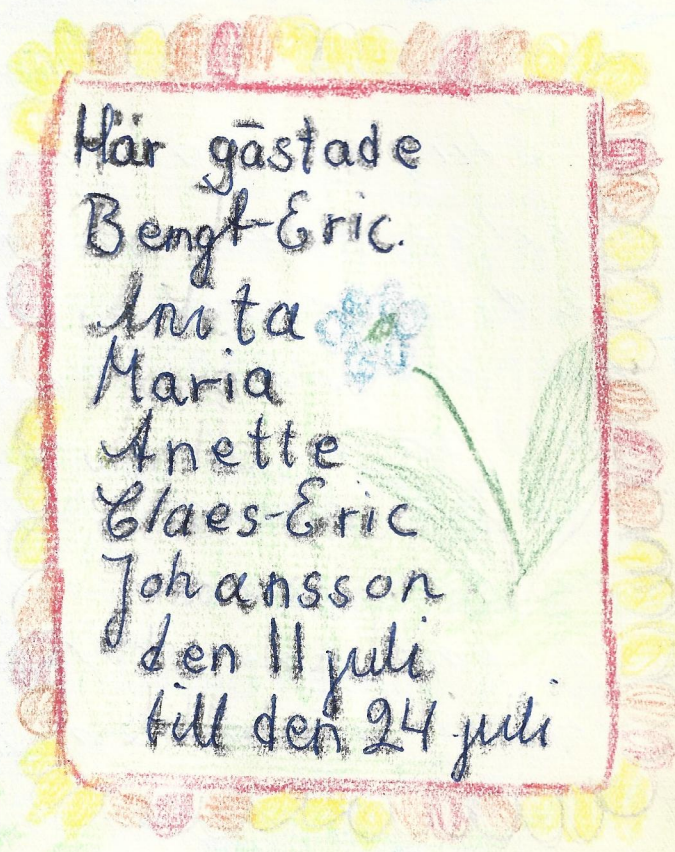 Här gästade
Bengt-Eric.
Anita
Maria
Anette
Claes-Eric
Johansson
den 11 juli
till den 24 juli